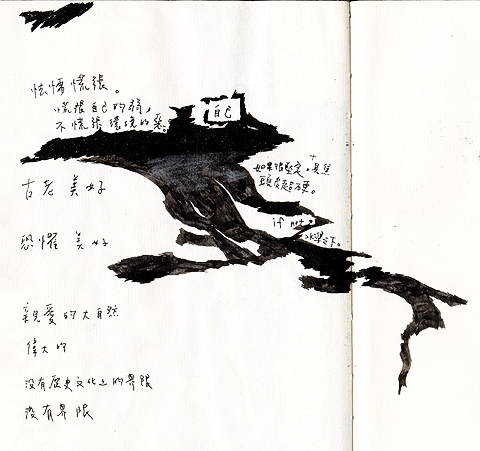 怯懦慌張。
慌張自己的弱,
不慌張環境的惡。
自己
如果很堅定,
頭皮超硬。
古老 美好
if not?
恐懼 美好
親愛的大自然
偉大的
沒有歷史文化上的界限
沒有界限